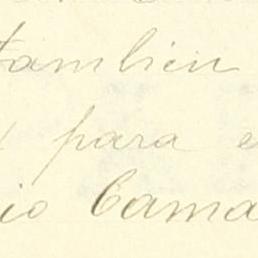 tambien
para e
io Cama